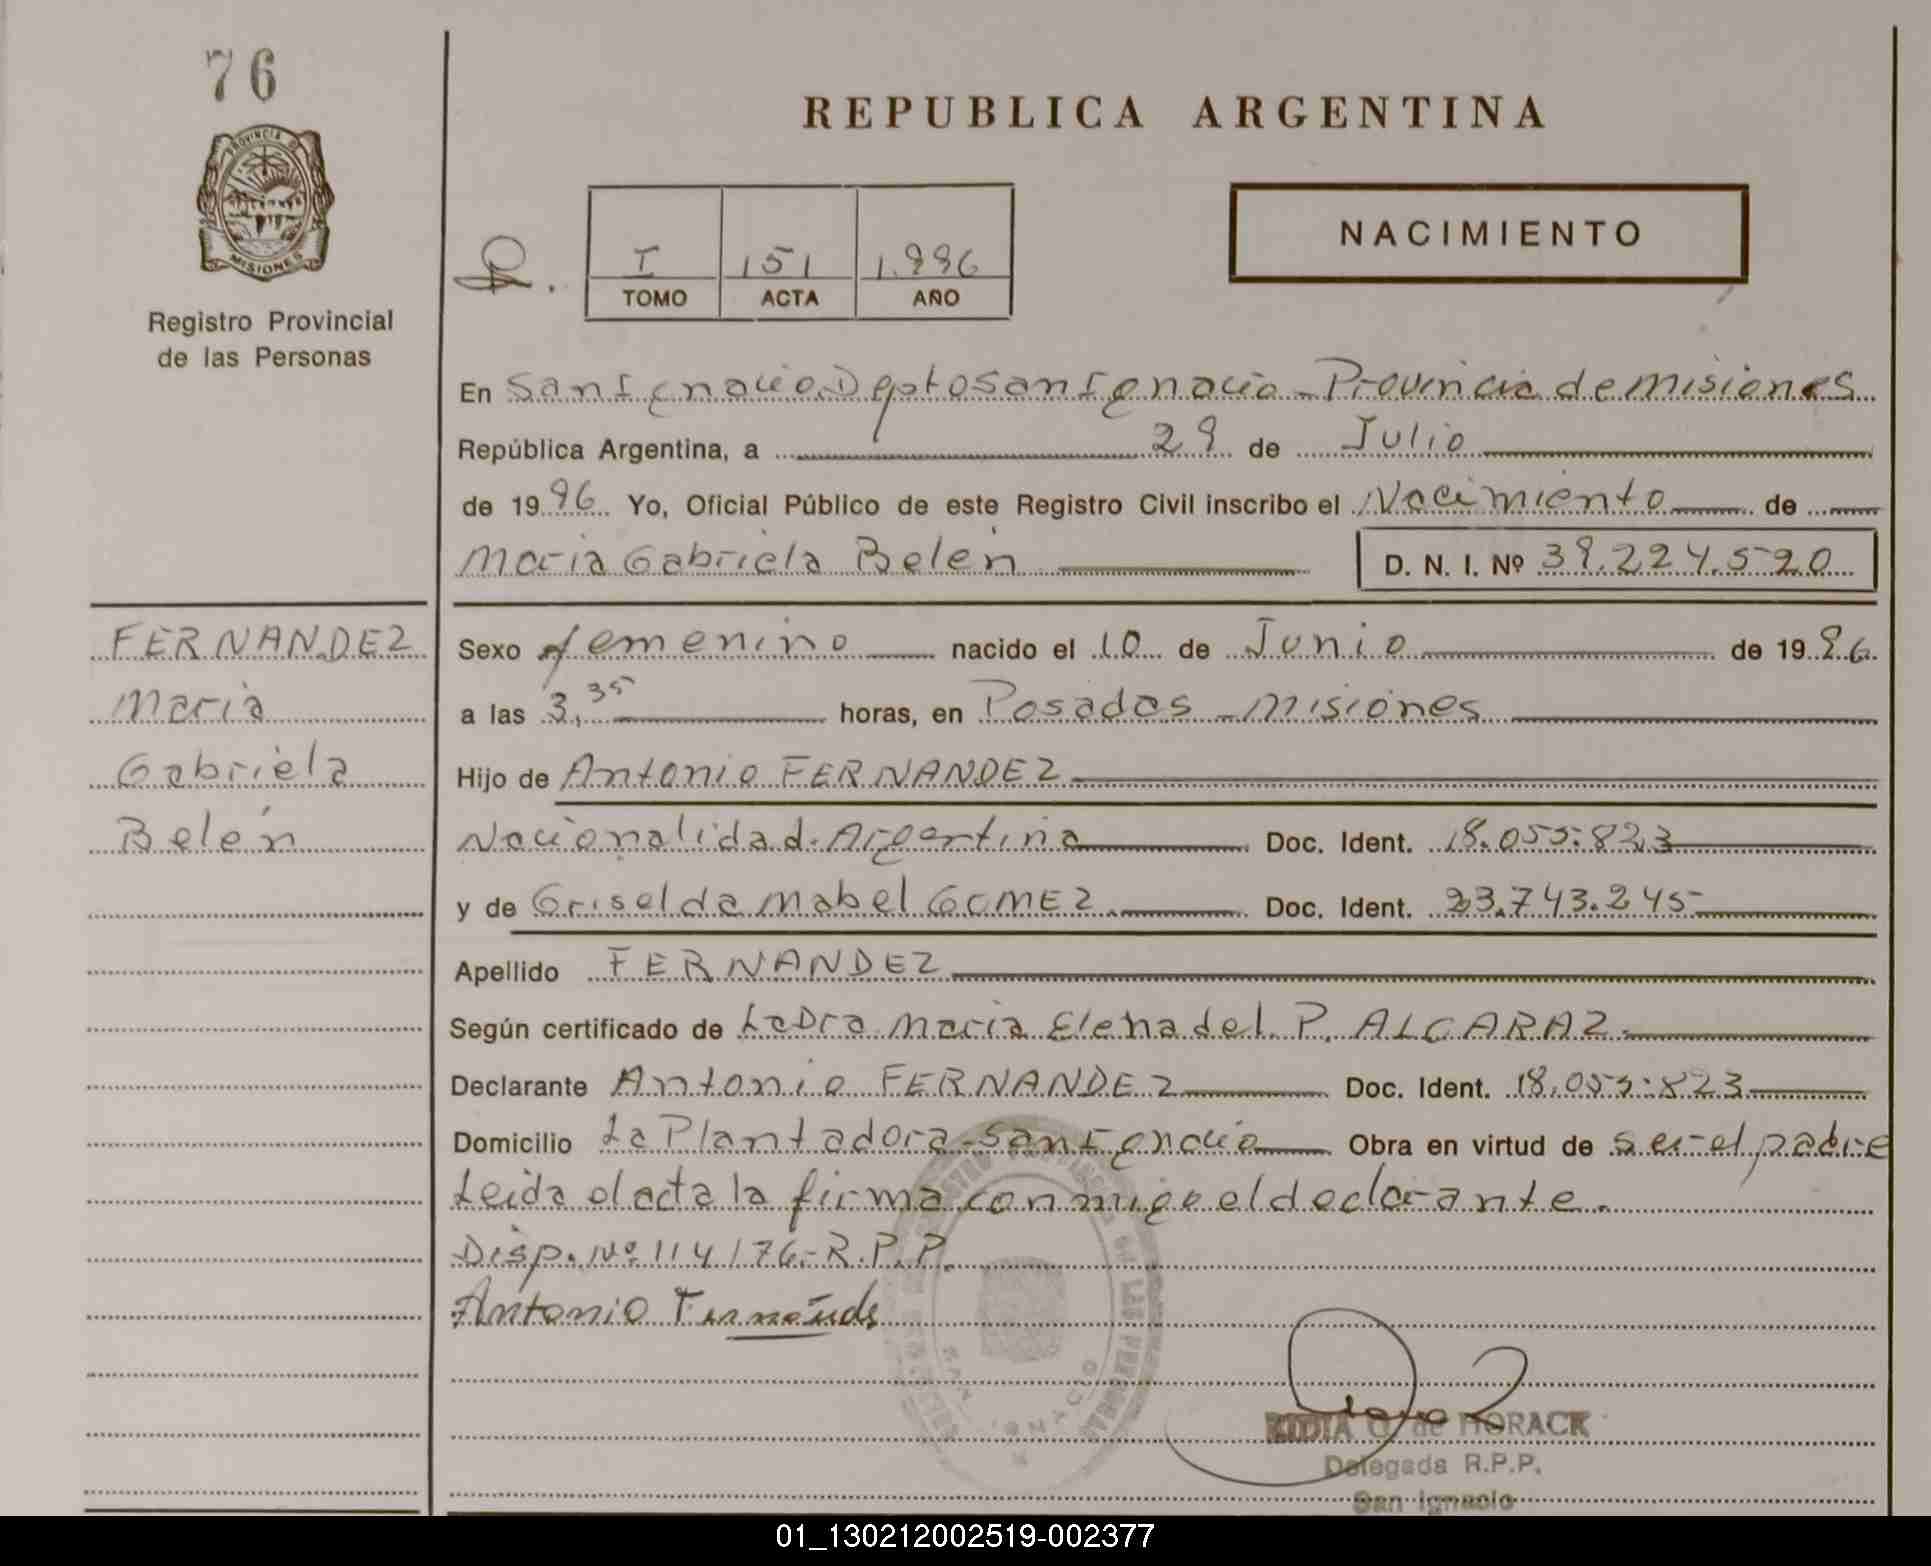 76
PROVINCIA D
MISIONES
Registro Provincial
de las Personas
REPUBLICA ARGENTINA
NACIMIENTO
I 151 1.996
TOMO ACTA AÑO
En San Ignacio Dpto San Ignacio - Provincia de Misiones
República Argentina, a 29 de Julio
de 1996 Yo, Oficial Público de este Registro Civil inscribo el Nacimiento de
Maria Gabriela Belén D. N. I. Nº 39.224.520
FERNANDEZ
Maria
Gabriela
Belén
Sexo femenino nacido el 10 de Junio de 1996
a las 3,35 horas, en Posadas - Misiones
Hijo de Antonio FERNANDEZ
Nacionalidad Argentina Doc. Ident. 18.055.823
y de Griselda Mabel GOMEZ Doc. Ident. 23.743.245
Apellido FERNANDEZ
Según certificado de La Dra Maria Elena del P. ALCARAZ
Declarante Antonio FERNANDEZ Doc. Ident. 18.055.823
Domicilio La Plantadora - San Ignacio Obra en virtud de ser el padre
Leida el acta la firma conmigo el declarante.
Disp. Nº 114/76 - R.P.P.
Antonio Fernandz
de HORACK
Delegada R.P.P.
San Ignacio
01_130212002519-002377